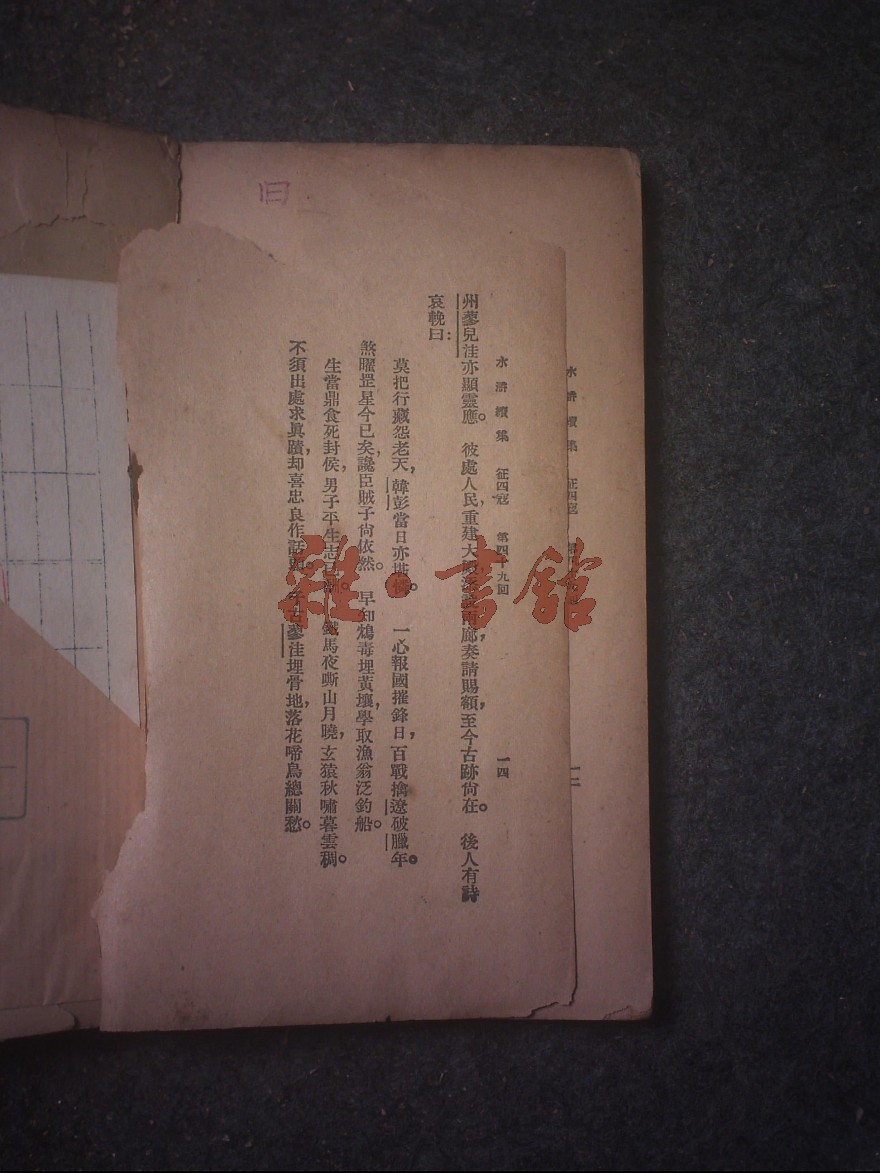 水滸續集 征四寇 第四十九回 一四
州蓼兒洼亦顯靈應。彼處人民，重建大 兩廊，奏請賜額，至今古跡尙在。後人有詩
哀輓曰：
莫把行藏怨老天，韓彭當日亦堪憐。一心報國摧鋒日，百戰擒遼破臘年。
煞曜罡星今已矣，讒臣賊子尙依然。早知鴆毒埋黃壤，學取漁翁泛釣船。
生當鼎食死封侯，男子平生志已酬。鐵馬夜嘶山月曉，玄猿秋嘯暮雲稠。
不須出處求眞蹟，却喜忠良作話頭。千古蓼洼埋骨地，落花啼鳥總關愁。
水滸續集 征四寇
一二
雜·書館